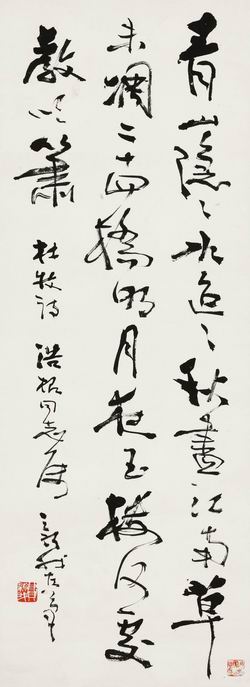 青山隱〻水迢〻秋盡江南草
未凋二十四橋明月夜玉樓何處
教吹簫 杜牧詩 浩同志屬 新我左筆